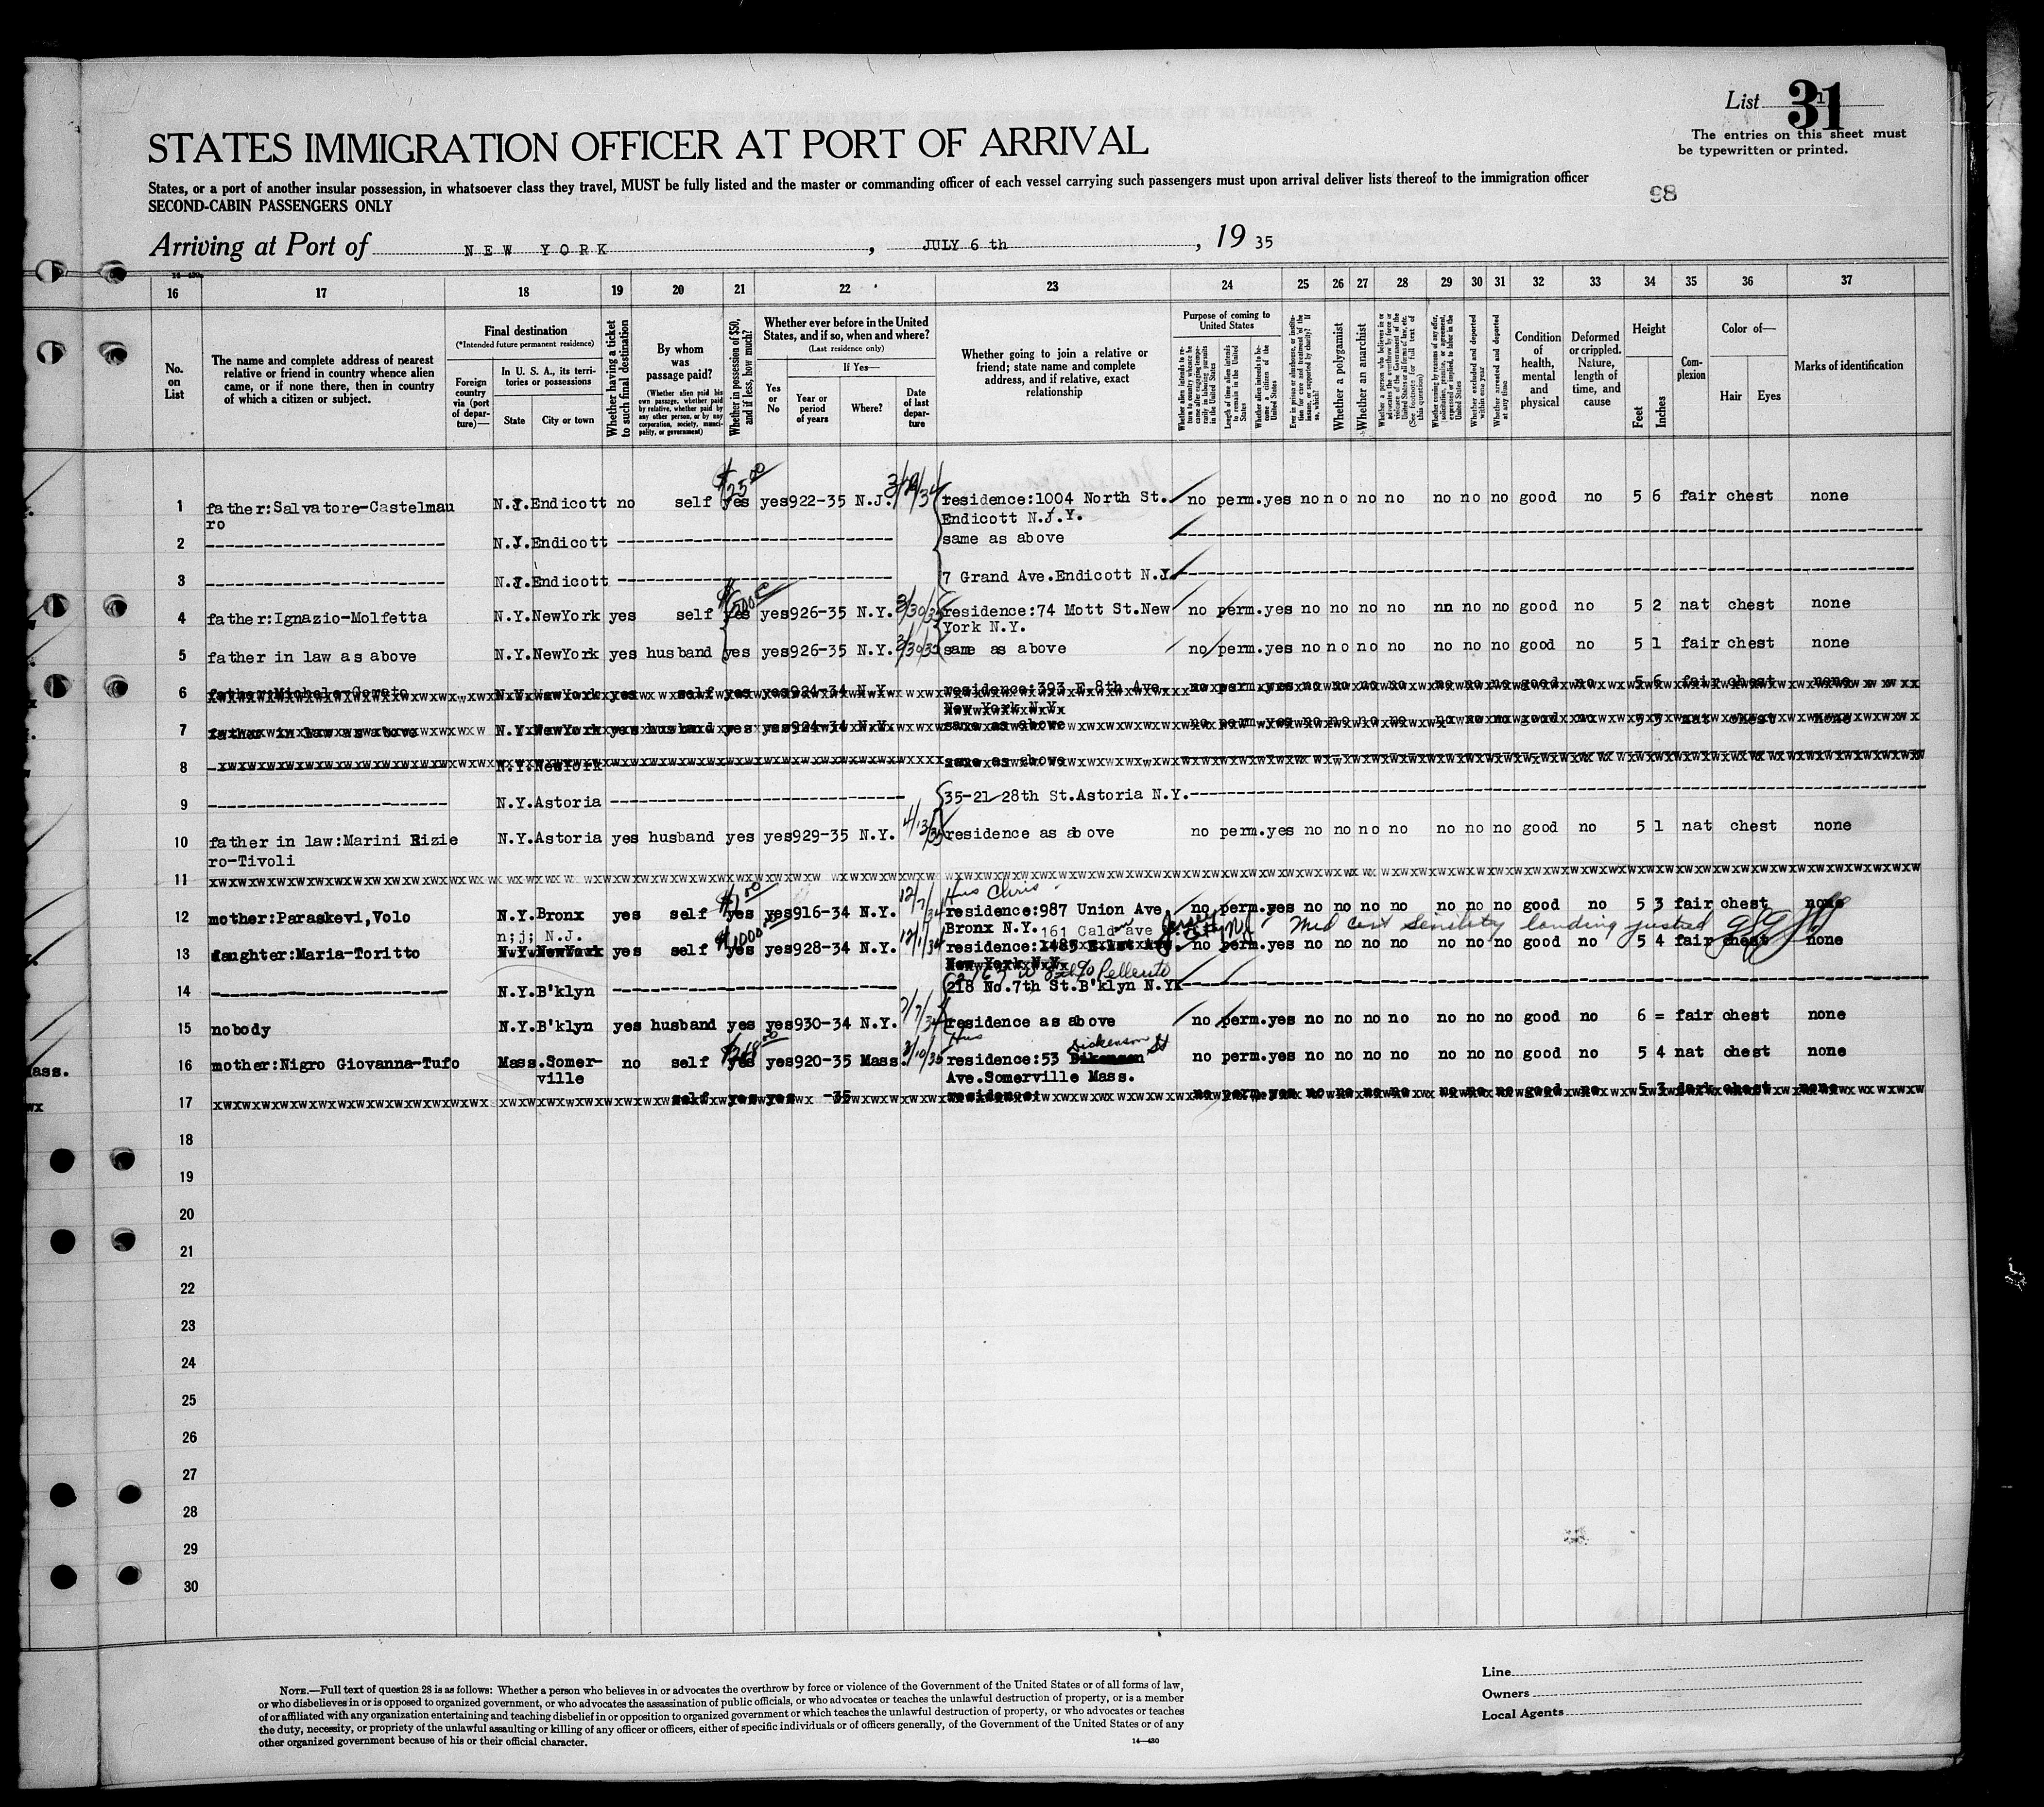 List 31
The entries on this sheet must
be typewritten or printed.
STATES IMMIGRATION OFFICER AT PORT OF ARRIVAL
States, or a port of another insular possession, in whatsoever class they travel, MUST be fully listed and the master or commanding officer of each vessel carrying such passengers must upon arrival deliver lists thereof to the immigration officer
SECOND-CABIN PASSENGERS ONLY
98
Arriving at Port of NEW YORK, JULY 6 th, 19 35
16 17 18 19 20 21 22 23 24 25 26 27 28 29 30 31 32 33 34 35 36 37
No. on List
The name and complete address of nearest
relative or friend in country whence alien
came, or if none there, then in country
of which a citizen or subject.
Final destination
(*Intended future permanent residence)
Foreign country via (port of departure)—
In U. S. A., its territories or possessions
State
City or town
Whether having a ticket to such final destination
By whom was passage paid?
(Whether alien paid his own passage, whether paid by relative, whether paid by any other person, or by any corporation, society, municipality, or government)
Whether in possession of $50, and if less, how much?
Whether ever before in the United States, and if so, when and where?
(Last residence only)
Yes or No
If Yes—
Year or period of years
Where?
Date of last departure
Whether going to join a relative or
friend; state name and complete
address, and if relative, exact
relationship
Purpose of coming to United States
Length of time alien intends to remain in the United States
Whether alien intends to become a citizen of the United States
Whether a polygamist
Whether an anarchist
Condition of health, mental and physical
Deformed or crippled. Nature, length of time, and cause
Height
Feet
Inches
Complexion
Color of—
Hair
Eyes
Marks of identification
1 father:Salvatore-Castelmau N.Y. Endicott no self yes $25.00 yes 922-35 N.J. residence:1004 North St. no perm. yes no no no no no no no good no 5 6 fair chest none
ro Endicott N.Y.
2 N.Y. Endicott same as above
3 N.Y. Endicott 7 Grand Ave.Endicott N.Y.
4 father:Ignazio-Molfetta N.Y. NewYork yes self yes $500 yes 926-35 N.Y. 3/30/35 residence:74 Mott St.New no perm. yes no no no no nn no no good no 5 2 nat chest none
York N.Y.
5 father in law as above N.Y. NewYork yes husband yes yes 926-35 N.Y. 3/30/35 same as above no perm. yes no no no no no no no good no 5 1 fair chest none
6 N.Y. NewYork yes self yes yes 924-34 N.Y. residence:393 E.8th Ave. no perm. yes no no no no no no no good no 5 6 fair chest none
New York N.Y.
7 father in law as above N.Y. NewYork yes husband yes yes 924-34 N.Y. same as above no perm. yes no no no no no no no good no 5 5 nat chest none
8 N.Y. NewYork same as above
9 N.Y. Astoria 35-21 28th St.Astoria N.Y.
10 father in law:Marini Rizie N.Y. Astoria yes husband yes yes 929-35 N.Y. 4/13/35 residence as above no perm. yes no no no no no no no good no 5 1 nat chest none
ro-Tivoli
11
Hus Chris
12 mother:Paraskevi,Volo N.Y. Bronx yes self yes yes 916-34 N.Y. 12/7/34 residence:987 Union Ave. no perm. yes no no no no no no no good no 5 3 fair chest none
Bronx N.Y.
n;j; N.J. 161 Cald ave Jersey City NJ Med cert senility landing justed
13 daughter:Maria-Toritto N.Y. NewYork yes self yes $1000.00 yes 928-34 N.Y. 12/1/34 residence: no perm. yes no no no no no no no good no 5 4 fair chest none
New York N.Y.
14 N.Y. B'klyn 218 No.7th St.B'klyn N.Y.
15 nobody N.Y. B'klyn yes husband yes yes 930-34 N.Y. 7/7/34 residence as above no perm. yes no no no no no no no good no 6 = fair chest none
Hus Dickenson St
16 mother:Nigro Giovanna-Tufo Mass. Somer- no self yes yes 920-35 Mass. residence:53 Dikenson no perm. yes no no no no no no no good no 5 4 nat chest none
ville Ave.Somerville Mass.
ass.
17 self yes yes -35 residence: no perm. yes no no no no no no no good no 5 3 dark chest none
18
19
20
21
22
23
24
25
26
27
28
29
30
NOTE.—Full text of question 28 is as follows: Whether a person who believes in or advocates the overthrow by force or violence of the Government of the United States or of all forms of law,
or who disbelieves in or is opposed to organized government, or who advocates the assassination of public officials, or who advocates or teaches the unlawful destruction of property, or is a member
of or affiliated with any organization entertaining and teaching disbelief in or opposition to organized government or which teaches the unlawful destruction of property, or who advocates or teaches
the duty, necessity, or propriety of the unlawful assaulting or killing of any officer or officers, either of specific individuals or of officers generally, of the Government of the United States or of any
other organized government because of his or their official character.
14—430
Line
Owners
Local Agents